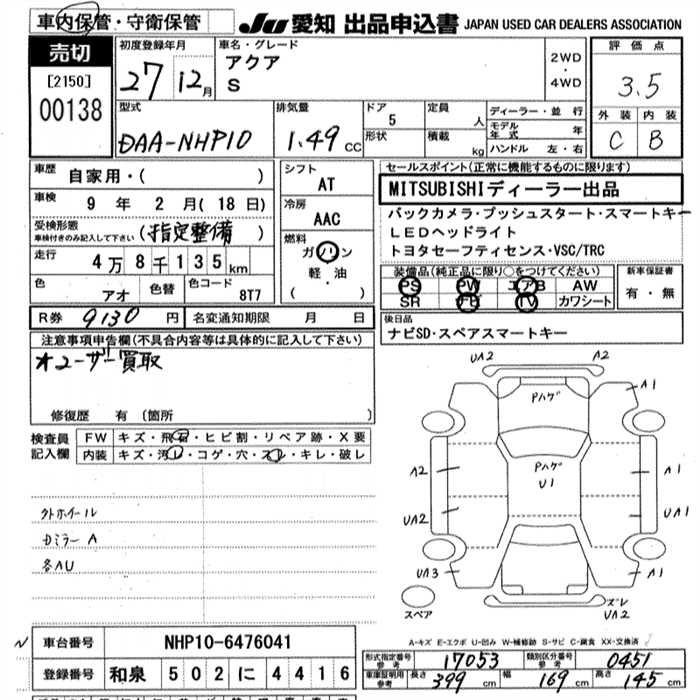 車内保管・守衛保管
JU 愛知 出品申込書 JAPAN USED CAR DEALERS ASSOCIATION
売切
[2150]
00138
初度登録年月
27 12月
車名・グレード
アクア
S
2WD
・
4WD
評価点
3.5
外装 内装
C B
型式
DAA-NHP10
排気量
1.49 CC
ドア
5
形状
定員
人
積載
kg
ディーラー・並行
モデル年式 年
ハンドル 左・右
車歴
自家用・( )
車検
9 年 2 月(18 日)
受検形態
車検付きのみ記入して下さい
(指定整備)
走行
4万8千135km
色
アオ
色替
色コード
8T7
シフト
AT
冷房
AAC
燃料
ガソリン
軽・油
( )
セールスポイント(正常に機能するものに限ります)
MITSUBISHIディーラー出品
バックカメラ・プッシュスタート・スマートキー
LEDヘッドライト
トヨタセーフティセンス・VSC/TRC
装備品(純正品に限り○をつけてください)
PS PW エアB AW
SR TV カワシート
新車保証書
有・無
R券 9130 円
名変通知期限 月 日
後日品
ナビSD・スペアスマートキー
注意事項申告欄(不具合内容等は具体的に記入して下さい)
オユーザー買取
修復歴 有 (箇所
検査員記入欄
FW キズ・飛石・ヒビ割・リペア跡・X要
内装 キズ・汚レ・コゲ・穴・スレ・キレ・破レ
外ホイール
カミラーA
各AU
UA2 A2
Pハゲ
A1
A2
Pハゲ
U1
UA2
UA1
UA3
A1
スペア
ズレ
UA2
A-キズ E-エクボ U-凹み W-補修跡 S-サビ C-腐食 XX-交換済
車台番号 NHP10-6476041
登録番号 和泉 502 に 4416
型式指定番号
参考
17053
類別区分番号
参考
0451
車庫証明用
参考
長さ 399 cm
幅 169 cm
高さ 145 cm